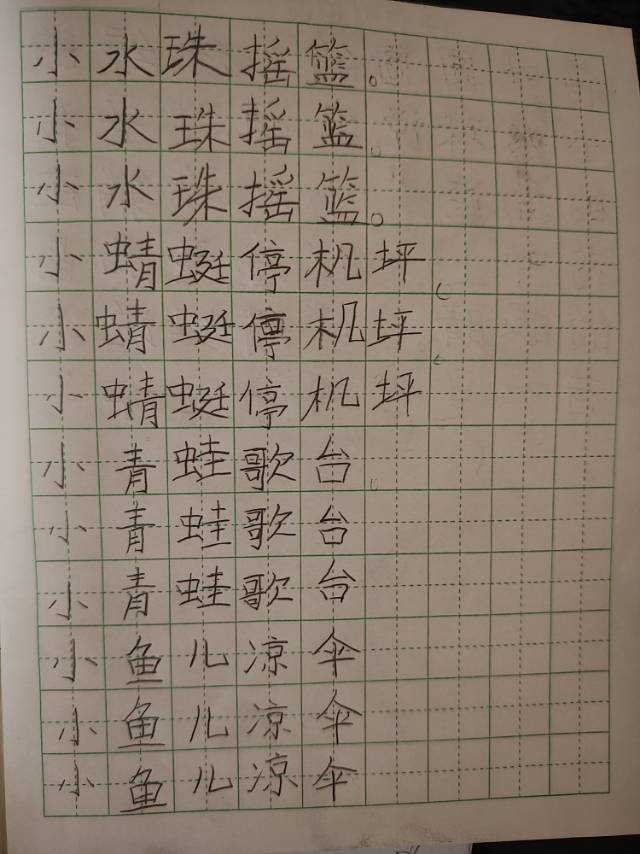 小水珠摇篮。
小水珠摇篮。
小水珠摇篮。
小蜻蜓停机坪
小蜻蜓停机坪
小蜻蜓停机坪
小青蛙歌台。
小青蛙歌台
小青蛙歌台
小鱼儿凉伞
小鱼儿凉伞
小鱼儿凉伞